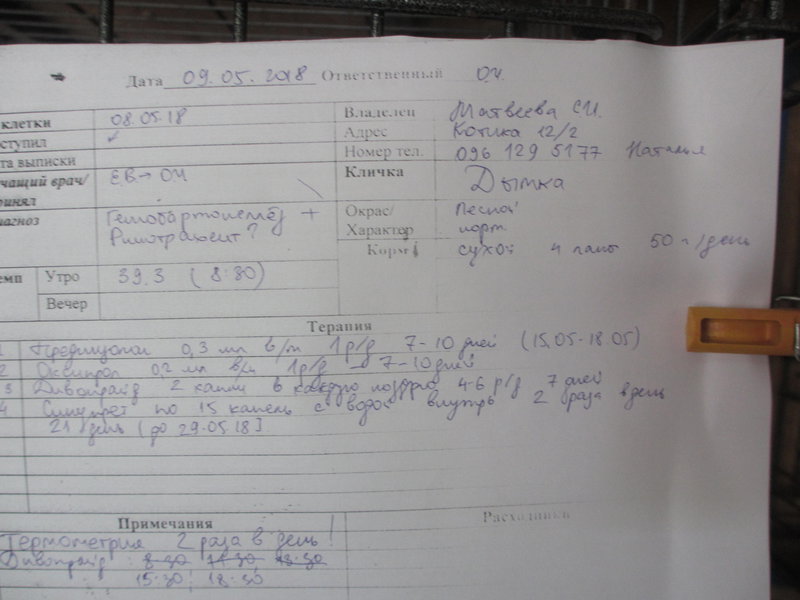 Дата 09.05.2018 Ответственный О.Ч.
клетки 08.05.18 Владелец Матвеева С.И.
ступил Адрес Котика 12/2
та выписки Номер тел. 096 129 5177 Наталья
чащий врач/ принял Е.В → О.Ч Кличка Дымка
иагноз Гемобартонеллёз + Ринотрахеит? Окрас/ Характер Лесной норм
Корм сухой 4 лапы 50 г/день
емп Утро 39.3 (8:30)
Вечер
Терапия
0,3 мл в/м 1 р/д 7-10 дней (15.05-18.05)
2 0,2 мл 1 р/д - 7-10 дней
3 2 капли в каждую ноздрю 4-6 р/д 7 дней
4 по 15 капель с водой внутрь 2 раза в день
21 день (до 29.05.18)
Примечания Расходники
Термометрия 2 раза в день!
8:30 14:30 18:30
15:30; 18:30